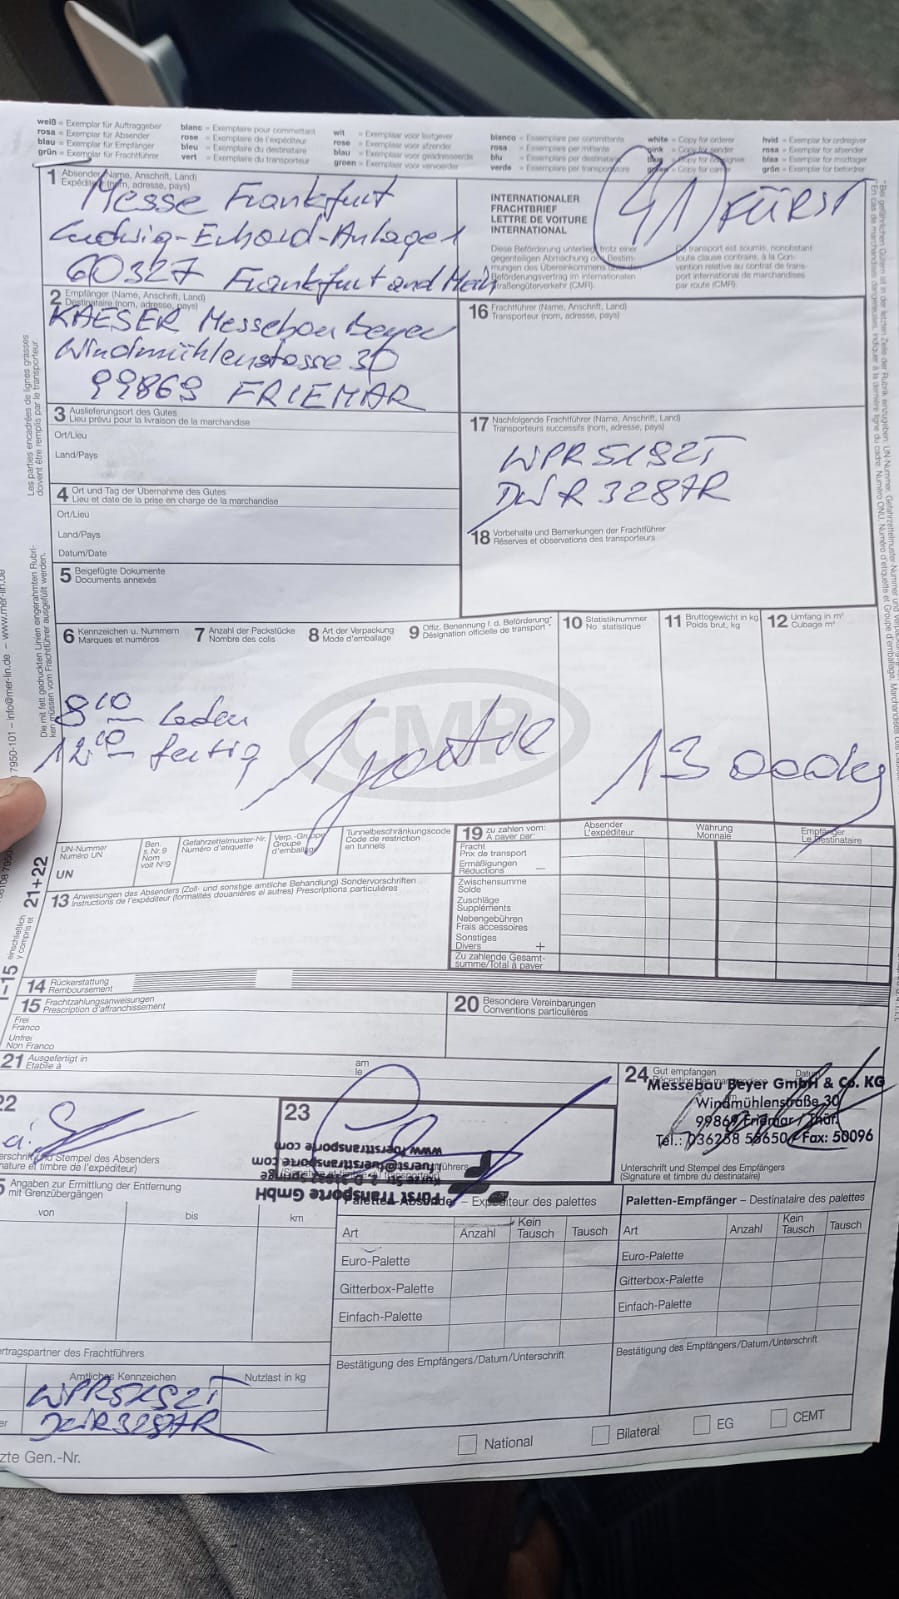 weiß = Exemplar für Auftraggeber
rosa = Exemplar für Absender
blau = Exemplar für Empfänger
grün = Exemplar für Frachtführer
blanc = Exemplaire pour commettant
rose = Exemplaire de l'expéditeur
bleu = Exemplaire du destinataire
vert = Exemplaire du transporteur
wit = Exemplaar voor lastgever
rose = Exemplaar voor afzender
blau = Exemplaar voor geadresseerde
groen = Exemplaar voor vervoerder
bianco = Essemplare per committente
rosa = Essemplare per mittente
blu = Essemplare per destinatario
verde = Essemplare per transportatore
white = Copy for orderer
pink = Copy for sender
hvid = Exemplar for ordregiver
rosa = Exemplar for afsender
blaa = Exemplar for modtager
grün = Exemplar for befordrer
1 Absender (Name, Anschrift, Land)
Expéditeur (nom, adresse, pays)
Messe Frankfurt
Ludwig-Erhard-Anlage 1
60327 Frankfurt
INTERNATIONALER
FRACHTBRIEF
LETTRE DE VOITURE
INTERNATIONAL
41 FÜRST
Diese Beförderung unterliegt trotz einer
gegenteiligen Abmachung den Bestim-
mungen des Übereinkommens über den
Beförderungsvertrag im internationalen
Straßengüterverkehr (CMR).
Ce transport est soumis, nonobstant
toute clause contraire, à la Con-
vention relative au contrat de trans-
port international de marchandises
par route (CMR).
2 Empfänger (Name, Anschrift, Land)
Destinataire (nom, adresse, pays)
KAESER Messebau Beyer
Windmühlenstasse 30
99869 FRIEMAR
16 Frachtführer (Name, Anschrift, Land)
Transporteur (nom, adresse, pays)
3 Auslieferungsort des Gutes
Lieu prévu pour la livraison de la marchandise
Ort/Lieu
Land/Pays
17 Nachfolgende Frachtführer (Name, Anschrift, Land)
Transporteurs successifs (nom, adresse, pays)
4 Ort und Tag der Übernahme des Gutes
Lieu et date de la prise en charge de la marchandise
Ort/Lieu
Land/Pays
Datum/Date
18 Vorbehalte und Bemerkungen der Frachtführer
Réserves et observations des transporteurs
5 Beigefügte Dokumente
Documents annexés
6 Kennzeichen u. Nummern
Marques et numéros
7 Anzahl der Packstücke
Nombre des colis
8 Art der Verpackung
Mode d'emballage
9 Offiz. Benennung f. d. Beförderung*
Désignation officielle de transport*
10 Statistiknummer
No. statistique
11 Bruttogewicht in kg
Poids brut, kg
12 Umfang in m³
Cubage m³
CMR
8⁰⁰ laden
12⁰⁰ fertig
13 000kg
UN-Nummer
Numéro UN
UN
Ben.
s. Nr. 9
Nom
voit N°9
Gefahrzettelmuster-Nr.
Numéro d'etiquette
Verp.-Gruppe
Groupe
d'emballage
Tunnelbeschränkungscode
Code de restriction
en tunnels
13 Anweisungen des Absenders (Zoll- und sonstige amtliche Behandlung) Sondervorschriften
Instructions de l'expéditeur (formalités douanières et autres) Prescriptions particulières
19 zu zahlen vom:
A payer par:
Absender
L'expéditeur
Währung
Monnaie
Empfänger
Le Destinataire
Fracht
Prix de transport
Ermäßigungen
Réductions
Zwischensumme
Solde
Zuschläge
Suppléments
Nebengebühren
Frais accessoires
Sonstiges
Divers +
Zu zahlende Gesamt-
summe/Total à payer
14 Rückerstattung
Remboursement
15 Frachtzahlungsanweisungen
Prescription d'affranchissement
Frei
Franco
Unfrei
Non Franco
20 Besondere Vereinbarungen
Conventions particulières
21 Ausgefertigt in
Etablie à
am
le
24 Gut empfangen
Messebau Beyer GmbH & Co. KG
Windmühlenstraße 30
99869 Friemar / Thür.
Fax: 50096
22
23
Unterschrift und Stempel des Absenders
Unterschrift und Stempel des Empfängers
(Signature et timbre du destinataire)
www.fuersttransporte.com
fuerst@fuersttransporte.com
Fürst Transporte GmbH
Angaben zur Ermittlung der Entfernung
mit Grenzübergängen
von bis km
Paletten-Absender – Expéditeur des palettes
Art Anzahl Kein Tausch Tausch
Euro-Palette
Gitterbox-Palette
Einfach-Palette
Bestätigung des Empfängers/Datum/Unterschrift
Paletten-Empfänger – Destinataire des palettes
Art Anzahl Kein Tausch Tausch
Euro-Palette
Gitterbox-Palette
Einfach-Palette
Bestätigung des Empfängers/Datum/Unterschrift
ertragspartner des Frachtführers
Amtliches Kennzeichen
Nutzlast in kg
National
Bilateral
EG
CEMT
zte Gen.-Nr.